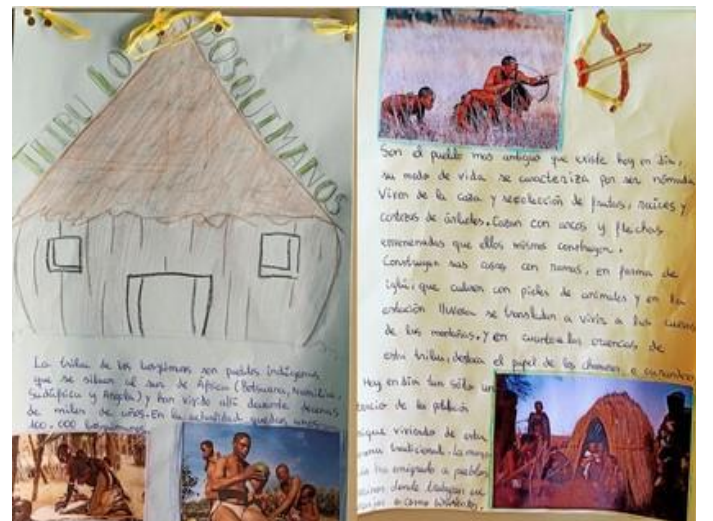 TRIBU LOS BOSQUIMANOS
La tribu de los bosquimanos son pueblos indígenas
que se sitúan al sur de África (Botsuana, Namibia,
Sudáfrica y Angola) y han vivido allí durante decenas
de miles de años. En la actualidad quedan unos
100.000 bosquimanos.
Son el pueblo mas antiguo que existe hoy en día,
su modo de vida se caracteriza por ser nómada
Viven de la caza y recolección de frutas, raíces y
cortezas de árboles. Cazan con arcos y flechas
envenenadas que ellos mismos construyen.
Construyen sus casas con ramas, en forma de
iglú, que cubren con pieles de animales y en la
estación lluviosa se trasladan a vivir a las cuevas
de las montañas. Y en cuanto a las creencias de
esta tribu, destaca el papel de los chamanes o curanderos
Hoy en día tan sólo un
tercio de la población
sigue viviendo de esta
forma tradicional. La mayor
ha emigrado a pueblos
donde trabajan
o como sirvientes.